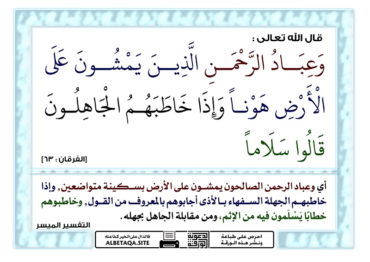 قال الله تعالى :
وَعِبَادُ الرَّحْمَنِ الَّذِينَ يَمْشُونَ عَلَى
الْأَرْضِ هَوْناً وَإِذَا خَاطَبَهُمُ الْجَاهِلُونَ
قَالُوا سَلَاماً
[الفرقان : ٦٣]
أي وعباد الرحمن الصالحون يمشون على الأرض بسكينة متواضعين, وإذا
خاطبهم الجهلة السفهاء بالأذى أجابوهم بالمعروف من القول, وخاطبوهم
خطابًا يَسْلَمون فيه من الإثم, ومن مقابلة الجاهل بجهله.
التفسير الميسر
احرص على طباعة
ونشر هذه الورقة
فالدال على الخير كفاعله
ALBETAQA.SITE